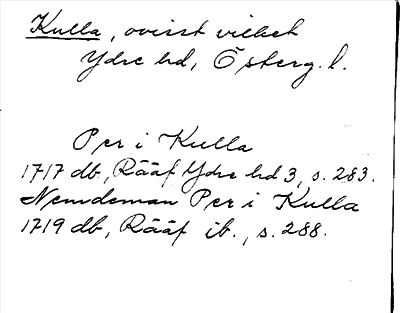 Kulla, ovisst vilket
Ydre hd, Österg. l.
Per i Kulla
1717 db, Rääf Ydre hd 3, s. 283.
Nemdeman Per i Kulla
1719 db, Rääf ib., s. 288.